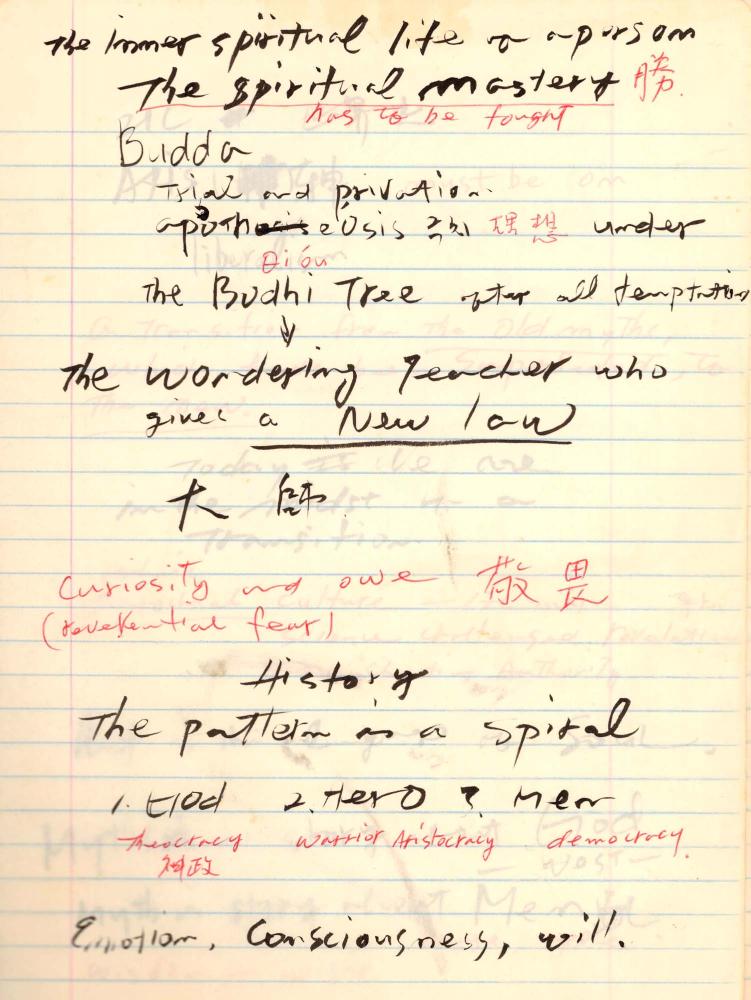 the inner spiritual life of a person
The spiritual mastery 勝
has to be fought
Budda
Trial and privation.
apotheosis 즉 理想 under
the Bodhi Tree after all temptation
↓
The wondering Teacher who
gives a New law
大 師
Curiosity and awe 敬畏
(reverential fear)
History
The pattern is a spiral
1. God 2. Hero 3. Men
theocracy warrior Aristocracy democracy.
神政
Emotion, Consciousness, will.